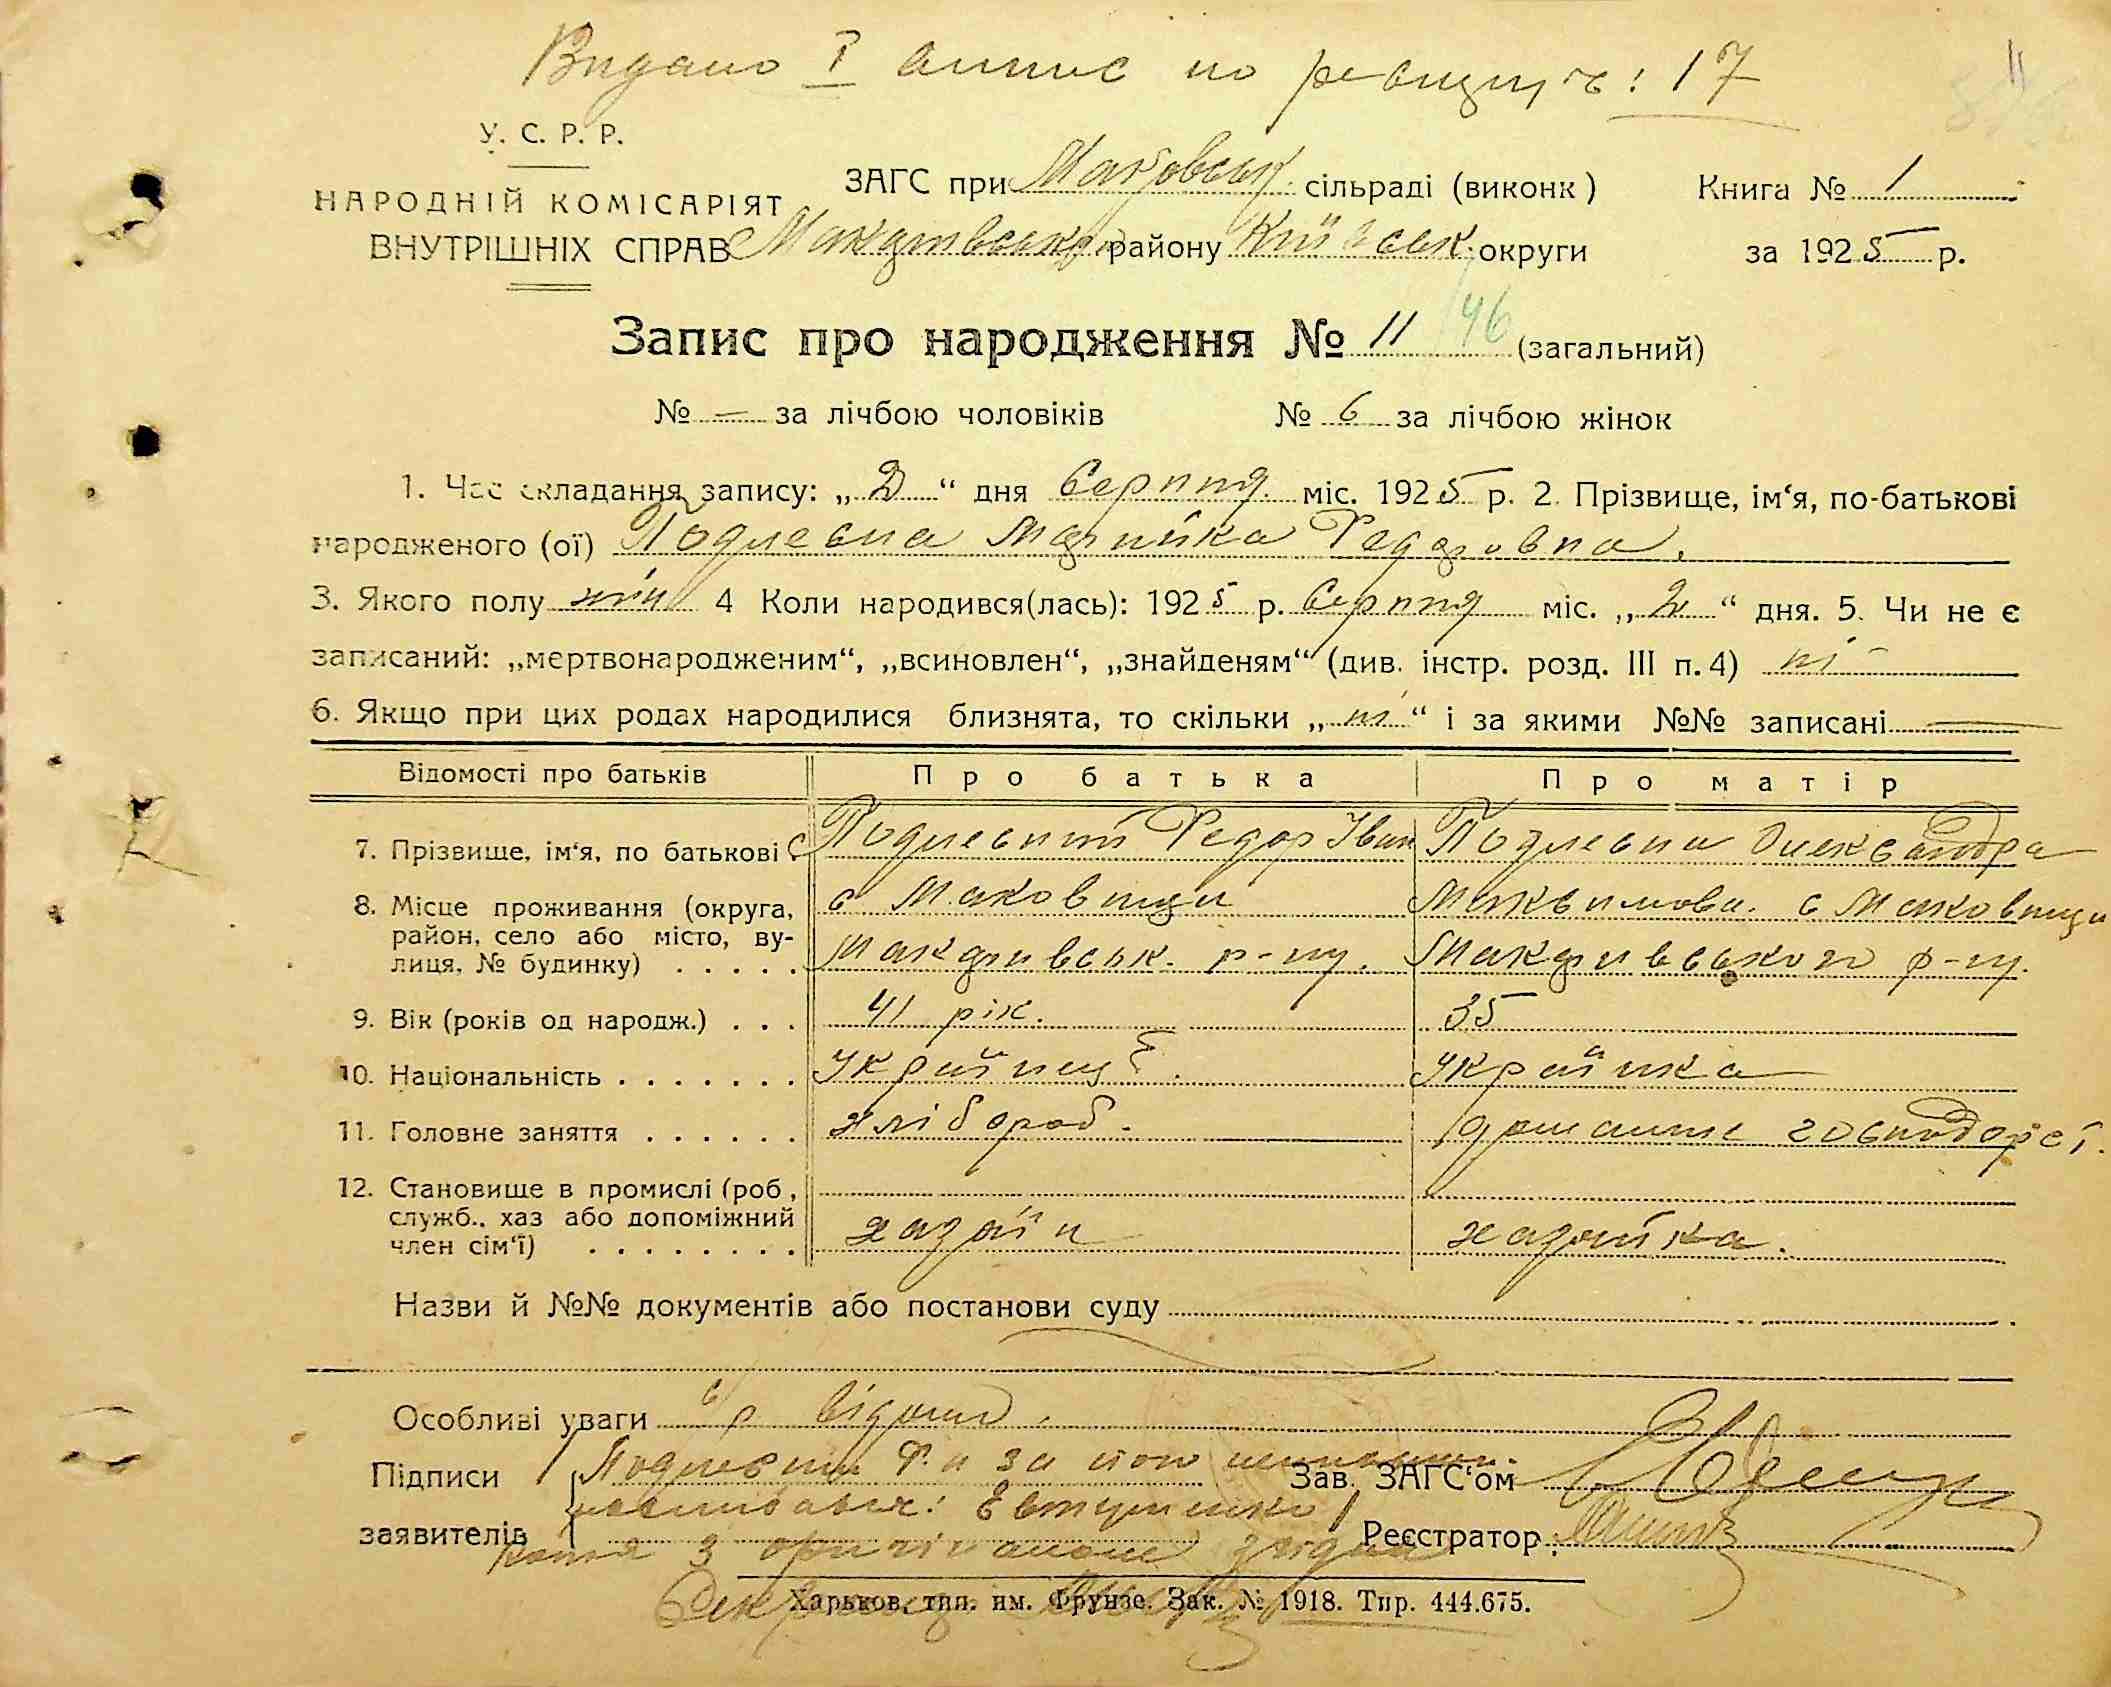 Видано I випис по реєстру ч: 17
У. С. Р. Р.
НАРОДНІЙ КОМІСАРІЯТ
ВНУТРІШНІХ СПРАВ
ЗАГС при Маковськ. сільраді (виконк)
Макарівськ району Київськ. округи
Книга № 1
за 1925 р.
Запис про народження № 11 46 (загальний)
№ — за лічбою чоловіків № 6 за лічбою жінок
1. Час складання запису: „2“ дня Серпня міс. 1925 р. 2. Прізвище, ім‘я, по-батькові
народженого (ої) Подлесна Марійка Федоровна.
3. Якого полу жін 4 Коли народився(лась): 1925 р. Серпня міс. „2“ дня. 5. Чи не є
записаний: „мертвонародженим“, „всиновлен“, „знайденям“ (див. інстр. розд. III п. 4) ні
6. Якщо при цих родах народилися близнята, то скільки „ні“ і за якими №№ записані —
Відомості про батьків Про батька Про матір
7. Прізвище, ім‘я, по батькові Подлесний Федор Іван Подлесна Олександра
8. Місце проживання (округа, с Маковищи Максимовн. с Маковищи
район, село або місто, ву-
лиця, № будинку) . . . . . Макарівськ. р-ну. Макарівського р-ну.
9. Вік (років од народж.) . . . 41 рік. 35
10. Національність . . . . . . . Українец. Українка
11. Головне заняття . . . . . . хлібороб. домашнє господарст.
12. Становище в промислі (роб,
служб., хаз або допоміжний хазяїн хазяйка.
член сім‘ї) . . . . . . . .
Назви й №№ документів або постанови суду
Особливі уваги
Підписи Подлесний Ф. и за його
заявителів
Зав. ЗАГС‘ом
Реєстратор
копія з згідна
Харьков. тип. им. Фрунзе. Зак. № 1918. Тир. 444.675.